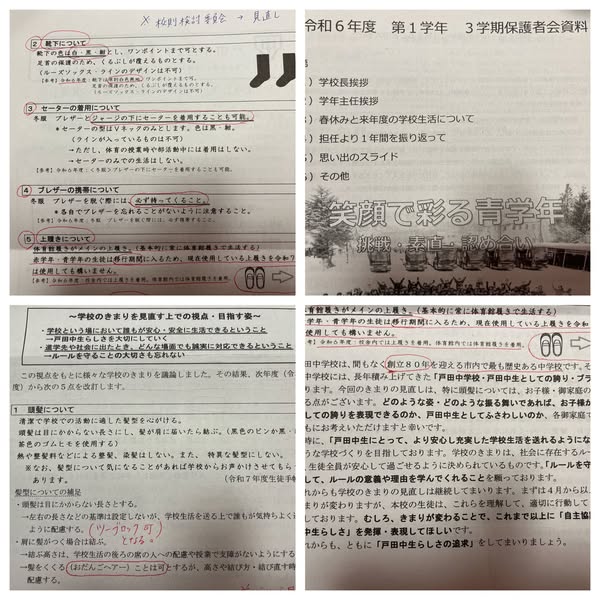 × 校則検討委員会 → 見直し
2 靴下について
靴下の色は白・黒・紺とし、ワンポイントまで可とする。
足首の保護のため、くるぶしが覆えるものとする。
(ルーズソックス・ラインのデザインは不可)
ワンポイントまで可。
足首の保護のため、くるぶしが覆えるものとする。
(ルーズソックス・ラインのデザインは不可)
3 セーターの着用について
冬服 ブレザーとジャージの下にセーターを着用することも可能。
*セーターの型はVネックのみとします。色は黒・紺。
(ラインが入っているものは不可)
→ただし、体育の授業時や部活動中には着用はしない。
→セーターのみでの生活はしない。
【参考】令和6年度:<冬服>ブレザーの下にセーターを着用することも可能。
4 ブレザーの携帯について
冬服 ブレザーを脱ぐ際には、必ず持ってくること。
*各自でブレザーを忘れることがないように注意すること。
5 上履きについて
体育館履きがメインの上履き。(基本的に常に体育館履きで生活する)
赤学年・青学年の生徒は移行期間に入るため、現在使用している上履きを令和7
は使用しても構いません。
【参考】令和6年度:校舎内では上履きを着用。体育館内では体育館履きを着用。
令和6年度 第1学年 3学期保護者会資料
)学校長挨拶
)学年主任挨拶
)春休みと来年度の学校生活について
)担任より1年間を振り返って
)思い出のスライド
)その他
笑顔で彩る青学年
~挑戦・素直・認め合い~
~学校のきまりを見直す上での視点・目指す姿~
・学校という場において誰もが安心・安全に生活できるということ
→戸田中生らしさを大切にしていく
・進学先や社会に出たとき、どんな場面でも誠実に対応できるということ
→ルールを守ることの大切さも忘れない
この視点をもとに様々な学校のきまりを議論しました。その結果、次年度(令
度)から次の5点を改訂します。
1 頭髪について
清潔で学校での活動に適した髪型を心がける。
頭髪は目にかからない長さにし、髪が肩に届いたら結ぶ。(黒色のピンか黒・
茶色のゴムヒモを使用する)
熱や整髪料などによる整髪、染髪はしない。また、特異な髪型にしない。
※なお、髪型について気になることがあれば学校からお声かけさせてもら
あります。
(令和7年度生徒手帳
髪型についての補足
・頭髪は目にかからない長さとする。
→左右の長さなどの基準は設定しないが、学校生活を送る上で誰もが気持ちよく
ように配慮する。(ツーブロック可)となる。
・肩に髪がつく場合は結ぶ。
→結ぶ高さは、学校生活の後ろの席の人への配慮や授業で支障がないようにする
→髪をくくる(おだんごヘアー)ことは可とするが、高さや結び方・結び直す時
配慮する。
体育館履きがメインの上履き。(基本的に常に体育館履きで生活する)
学年・青学年の生徒は移行期間に入るため、現在使用している上履きを令和
使用しても構いません。
令和6年度:校舎内では上履きを着用。体育館内では体育館履きを着用。
田中学校は、間もなく創立80年を迎える市内で最も歴史ある中学校です。そ
中学校には、長年積み上げてきた「戸田中学校・戸田中生としての誇り・プラ
ます。今回のきまりの見直しは、特に頭髪については、お子様・御家庭での
る点がございます。どのような姿・どのような振る舞いであれば、お子様が
しての誇りを表現できるのか、戸田中生としてふさわしいのか、各御家庭で
もにお考えいただけますと幸いです。
時に、「戸田中生にとって、より安心し充実した学校生活を送れるようにな
うな学校づくりを目指しております。学校のきまりは、社会に存在するルー
生徒全員が安心して過ごせるように決められているものです。「ルールを守
して、ルールの意義や理由を学んでくれること」を願っております。
れからも学校のきまりの見直しは継続してまいります。まずは4月から以上
まりが変わりますが、本校の生徒は、これらを理解して、適切に行動して
しております。むしろ、きまりが変わることで、これまで以上に「自主協
中生らしさ」を発揮・表現してほしいです。
れからも、ともに「戸田中生らしさの追求」をしてまいりましょう。